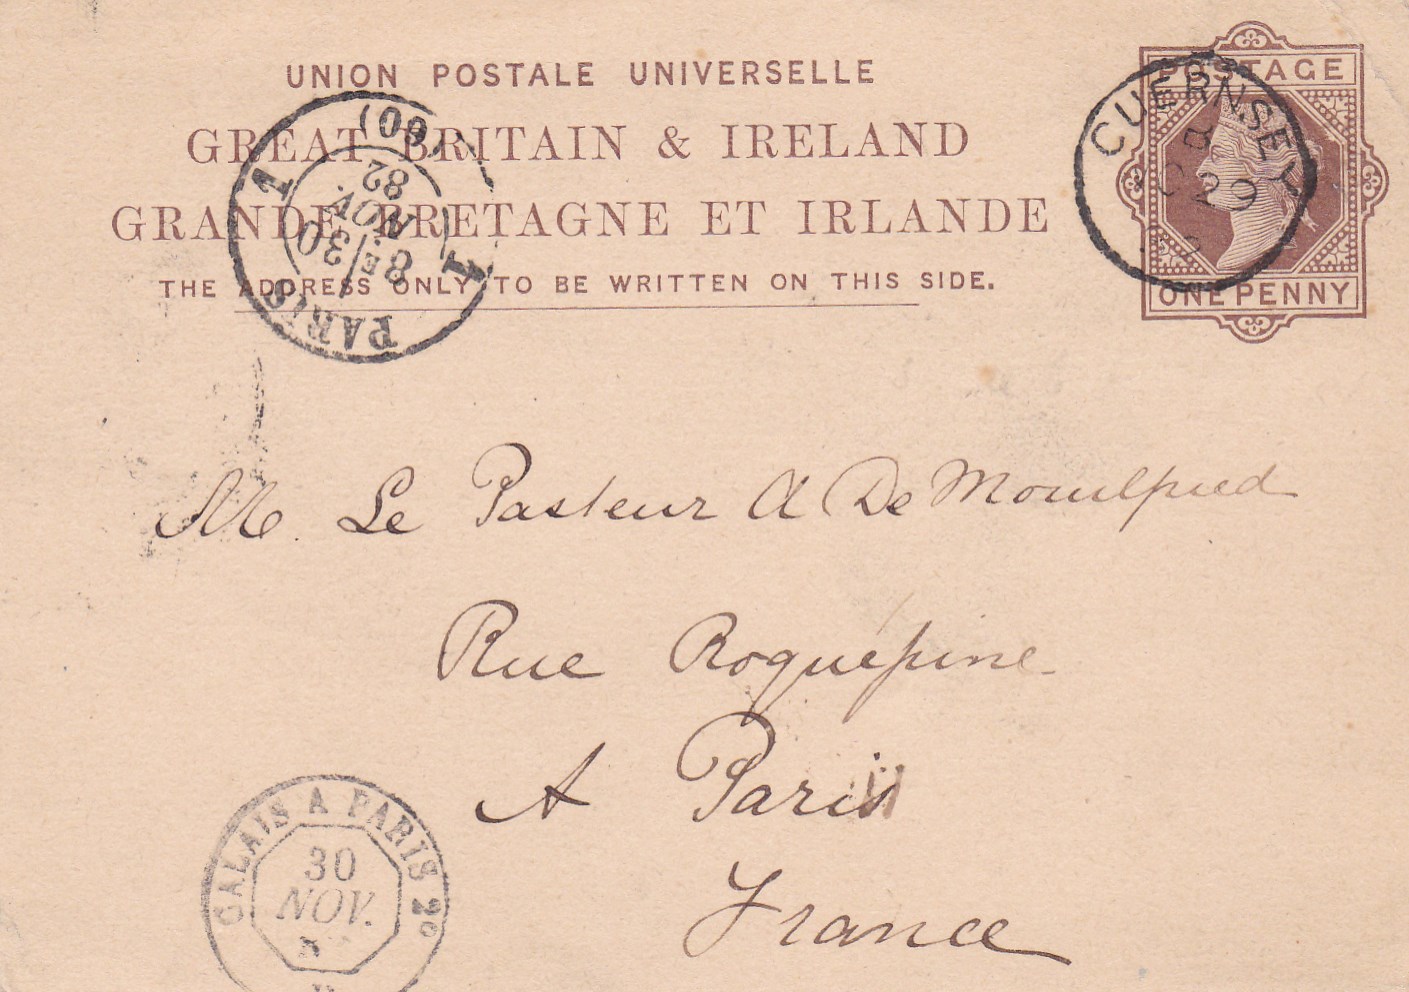 UNION POSTALE UNIVERSELLE
GREAT BRITAIN & IRELAND
GRANDE BRETAGNE ET IRLANDE
THE ADDRESS ONLY TO BE WRITTEN ON THIS SIDE.
POSTAGE
ONE PENNY
GUERNSEY
B
29
PARIS
1
(60)
1
8E 30
NOV.
82
M. Le Pasteur A De Mouilpied
Rue Roquépine
A Paris
France
CALAIS A PARIS 2°
30
NOV.